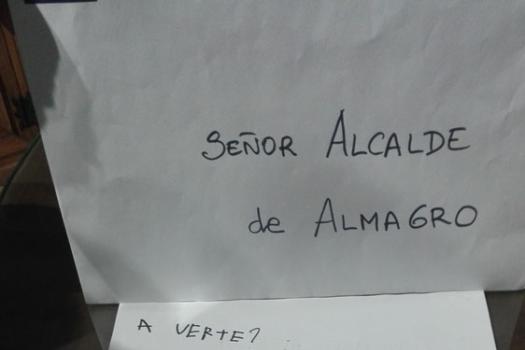 SEÑOR ALCALDE
de ALMAGRO
A VERTE?